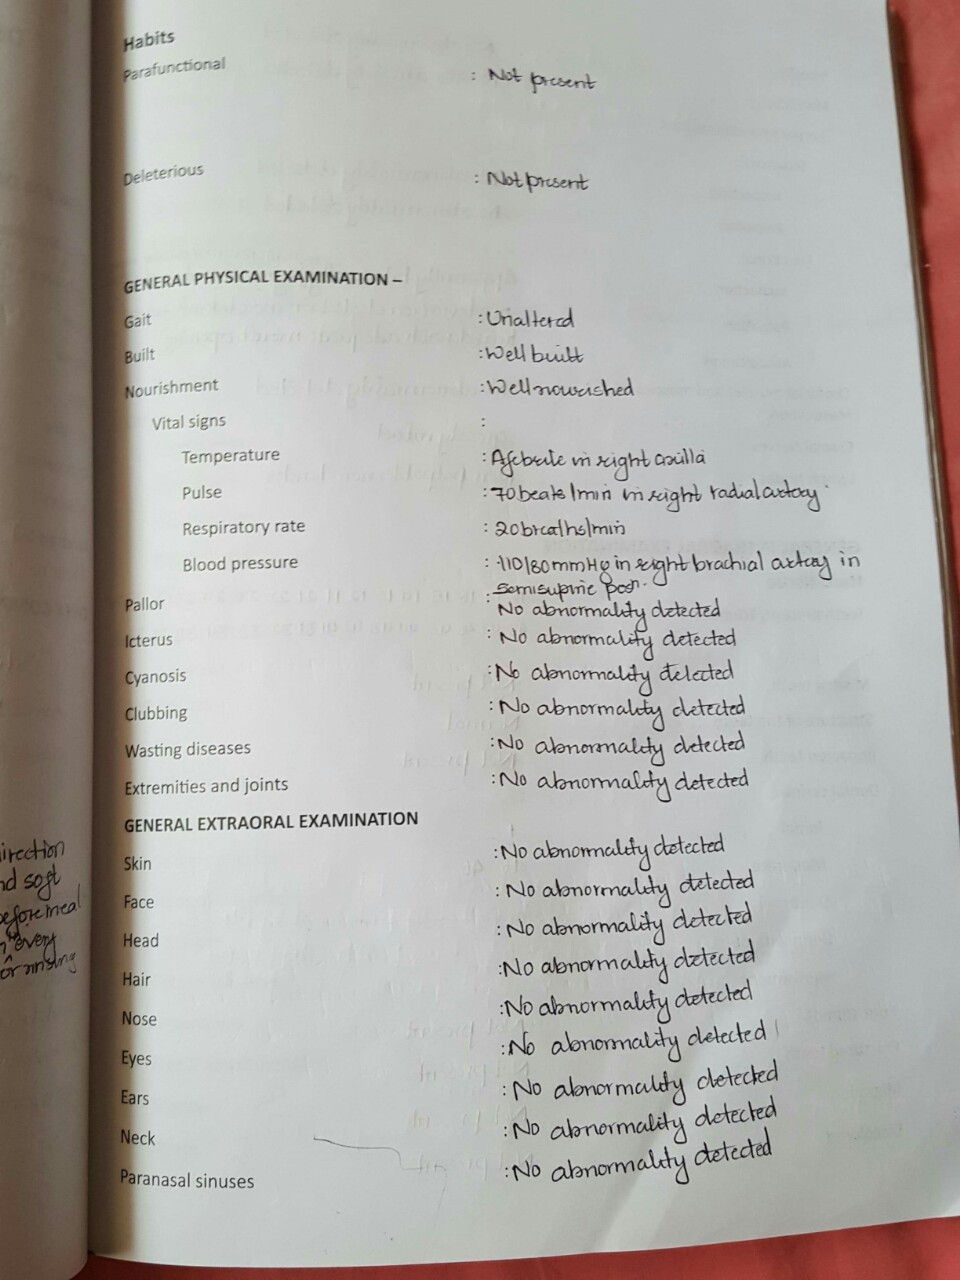 Habits
Parafunctional : Not present
Deleterious : Not present
GENERAL PHYSICAL EXAMINATION –
Gait : Unaltered
Built : Well built
Nourishment : Well nourished
Vital signs :
Temperature : Afebrile in right axilla
Pulse : 70 beats/min in right radial artery.
Respiratory rate : 20 breaths/min
Blood pressure : 110/80 mmHg in right brachial artery in
semisupine posn.
Pallor : No abnormality detected
Icterus : No abnormality detected
Cyanosis : No abnormality detected
Clubbing : No abnormality detected
Wasting diseases : No abnormality detected
Extremities and joints : No abnormality detected
GENERAL EXTRAORAL EXAMINATION
Skin : No abnormality detected
Face : No abnormality detected
Head : No abnormality detected
Hair : No abnormality detected
Nose : No abnormality detected
Eyes : No abnormality detected
Ears : No abnormality detected
Neck : No abnormality detected
Paranasal sinuses : No abnormality detected
irection
nd soft
before meal
every
or rinsing